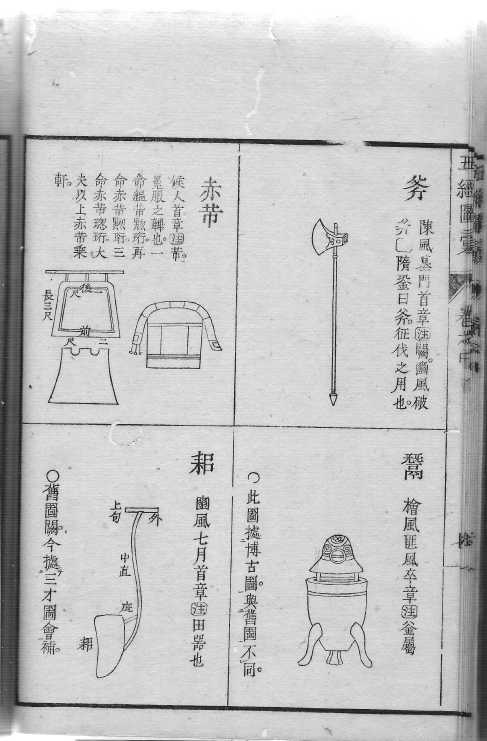 五經圖彙
斧
陳風墓門首章注闕豳風破
斧隋銎曰斧征伐之用也
赤芾
候人首章注芾
冕服之韠也一
命縕芾黝珩再
命赤芾黝珩三
命赤芾葱珩大
夫以上赤芾乗
軒
後一尺
長三尺
前二尺
鬵
檜風匪風卒章注釜屬
此圖據博古圖與舊圖不同
耜
豳風七月首章注田器也
上句
外
中直
庇
耜
舊圖闕今據三才圖會補